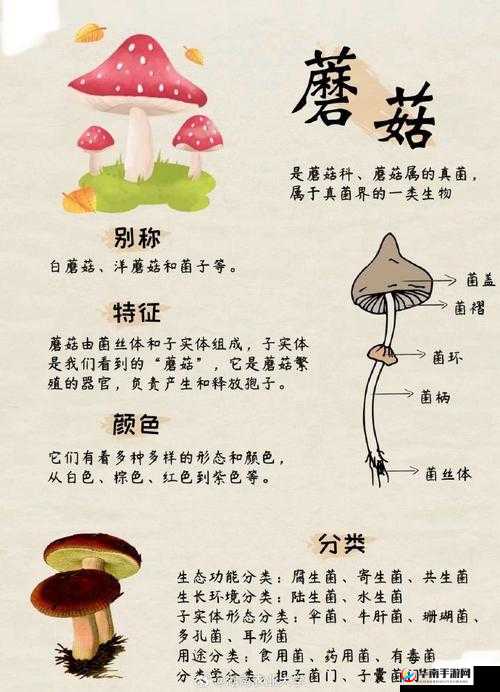 蘑菇
是蘑菇科、蘑菇属的真菌,
属于真菌界的一类生物
别称
白蘑菇、洋蘑菇和菌子等。
特征
蘑菇由菌丝体和子实体组成，子实体
是我们看到的“蘑菇”，它是蘑菇繁
殖的器官，负责产生和释放孢子。
菌盖
菌褶
菌环
菌柄
菌丝体
颜色
它们有着多种多样的形态和颜色，
从白色、棕色、红色到紫色等。
分类
生态功能分类：腐生菌、寄生菌、共生菌
生长环境分类：陆生菌、水生菌
子实体形态分类：伞菌、牛肝菌、珊瑚菌、
多孔菌、耳形菌
用途分类：食用菌、药用菌、有毒菌
分类学分类：担子菌门、子囊菌
华南手游网